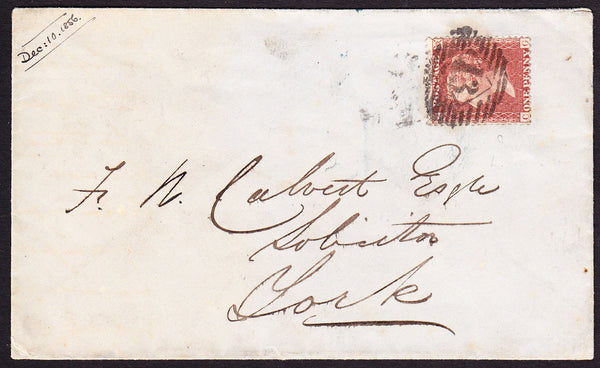 Dec: 10. 1856.
POSTAGE
ONE PENNY
F. N. Calvert Esqre
Solicitor
York